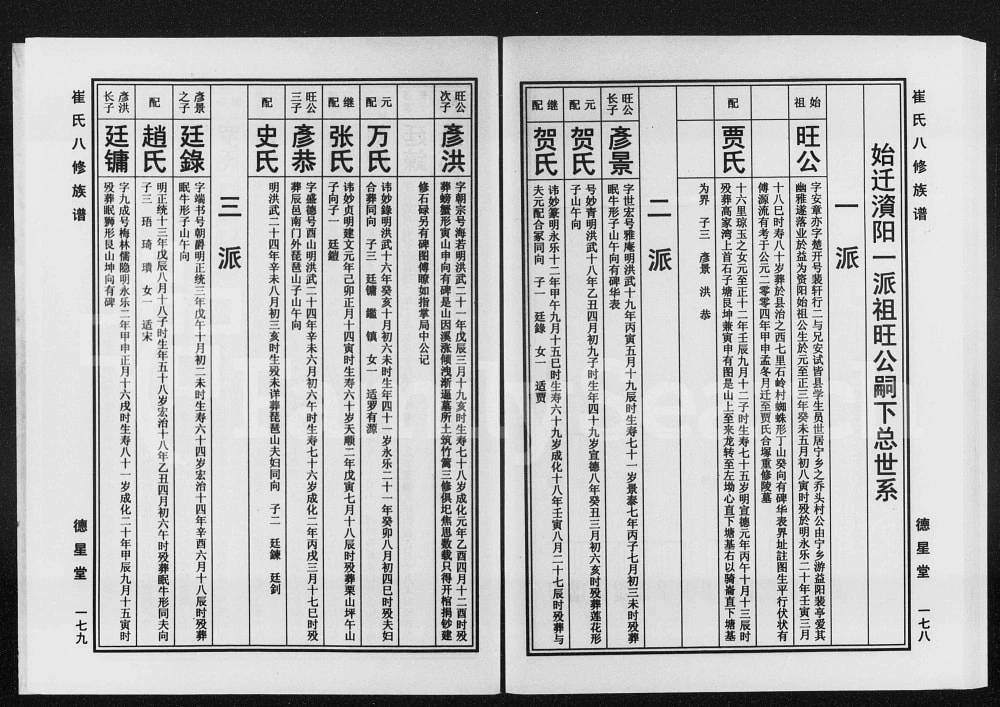 崔氏八修族谱
德星堂
一七八
始迁資阳一派祖旺公嗣下总世系
一派
始祖
旺公
字安章亦字楚开号裴轩行二与兄安试皆县学生员世居宁乡之乔头村公由宁乡游益阳裴亭爱其
幽雅遂落业於益为资阳始祖公生於元至正三年癸未五月初八寅时殁於明永乐二十年壬寅三月
十八巳时寿八十岁葬於县治之西七里石岭村蜘蛛形丁山癸向有碑华表界址註图生平行伏状有
傅源流有考于公元二零零四年甲申孟冬月迁至贾氏合塚重修陵墓
配
贾氏
十六里琼玉之女元至正十二年壬辰九月十二子时生寿七十五岁明宣德元年丙午十月十三辰时
殁葬高家湾上首石子塘艮坤兼寅申有图是山上至来龙转至左坳心直下塘基右以骑崙直下塘基
为界 子三 彥景 洪 恭
二派
旺公长子
彥景
字世宏号雅庵明洪武十九年丙寅五月十九辰时生寿七十一岁景泰七年丙子七月初三未时殁葬
眠牛形子山午向有碑华表
元配
贺氏
号妙青明洪武十八年乙丑四月初九子时生年四十九岁宣德八年癸丑三月初六亥时殁葬莲花形
子山午向
继配
贺氏
讳妙篆明永乐十二年甲午九月十五巳时生寿六十九岁成化十八年壬寅八月二十七辰时殁葬与
夫元配合冢同向 子一 廷錄 女一 适贾
旺公次子
彥洪
字朝宗号海若明洪武二十一年戊辰三月十九亥时生寿七十八岁成化元年乙酉四月十二酉时殁
葬螃蟹形寅山申向有碑是山因溪涨倾洩渐逼墓所土筑竹篙三修俱圮焦思数载只得开棺捐钞建
修石碌另有碑图傅瞭如指掌局中公记
元配
万氏
讳妙錄明洪武十六年癸亥十月初六未时生年四十一岁永乐二十一年癸卯八月初四巳时殁夫妇
合葬同向 子三 廷镛 鑑 镇 女一 适罗有源
继配
张氏
讳妙贞明建文元年己卯正月十四寅时生寿六十岁天顺二年戊寅七月十八辰时殁葬栗山坪午山
子向子一 廷鎧
旺公三子
彥恭
字盛德号酉山明洪武二十四年辛未六月初六午时生寿七十六岁成化二年丙戌三月十七巳时殁
葬辰邑南门外琵琶山子山午向
配
史氏
明洪武二十四年辛未八月初三亥时生殁未详葬琵琶山夫妇同向 子二 廷鍊 廷釗
三派
彥景之子
廷錄
字端书号朝爵明正统三年戊午十月初二未时生寿六十四岁宏治十四年辛酉六月十八辰时殁葬
眠牛形子山午向
配
趙氏
明正统十三年戊辰八月十八子时生年五十八岁宏治十八年乙丑四月初六午时殁葬眠牛形同夫向
子三 珸 琦 瓆 女一 适宋
彥洪长子
廷镛
字九成号梅林儒隐明永乐二年甲申正月十六戌时生寿八十一岁成化二十年甲辰九月十五寅时
殁葬眠狮形艮山坤向有碑
崔氏八修族谱
德星堂
一七九